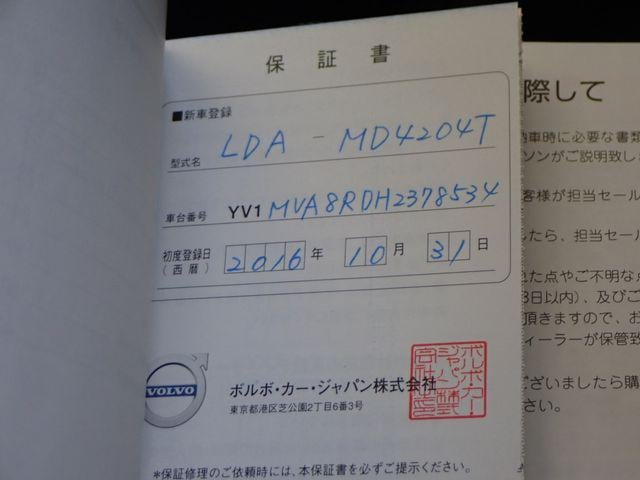 保証書
■新車登録
型式名 LDA - MD4204T
車台番号 YV1 MVA8RDH2378534
初度登録日 (西暦) 2016年 10月 31日
VOLVO
ボルボ・カー・ジャパン株式会社
東京都港区芝公園2丁目6番3号
*保証修理のご依頼時には、本保証書を必ずご提示ください。
際して
納車時に必要な書類
ソンがご説明致し
客様が担当セール
したら、担当セール
れた点やご不明な点
3日以内)、及びご
頂きますので、お
ィーラーが保管致
ございましたら購
さい。